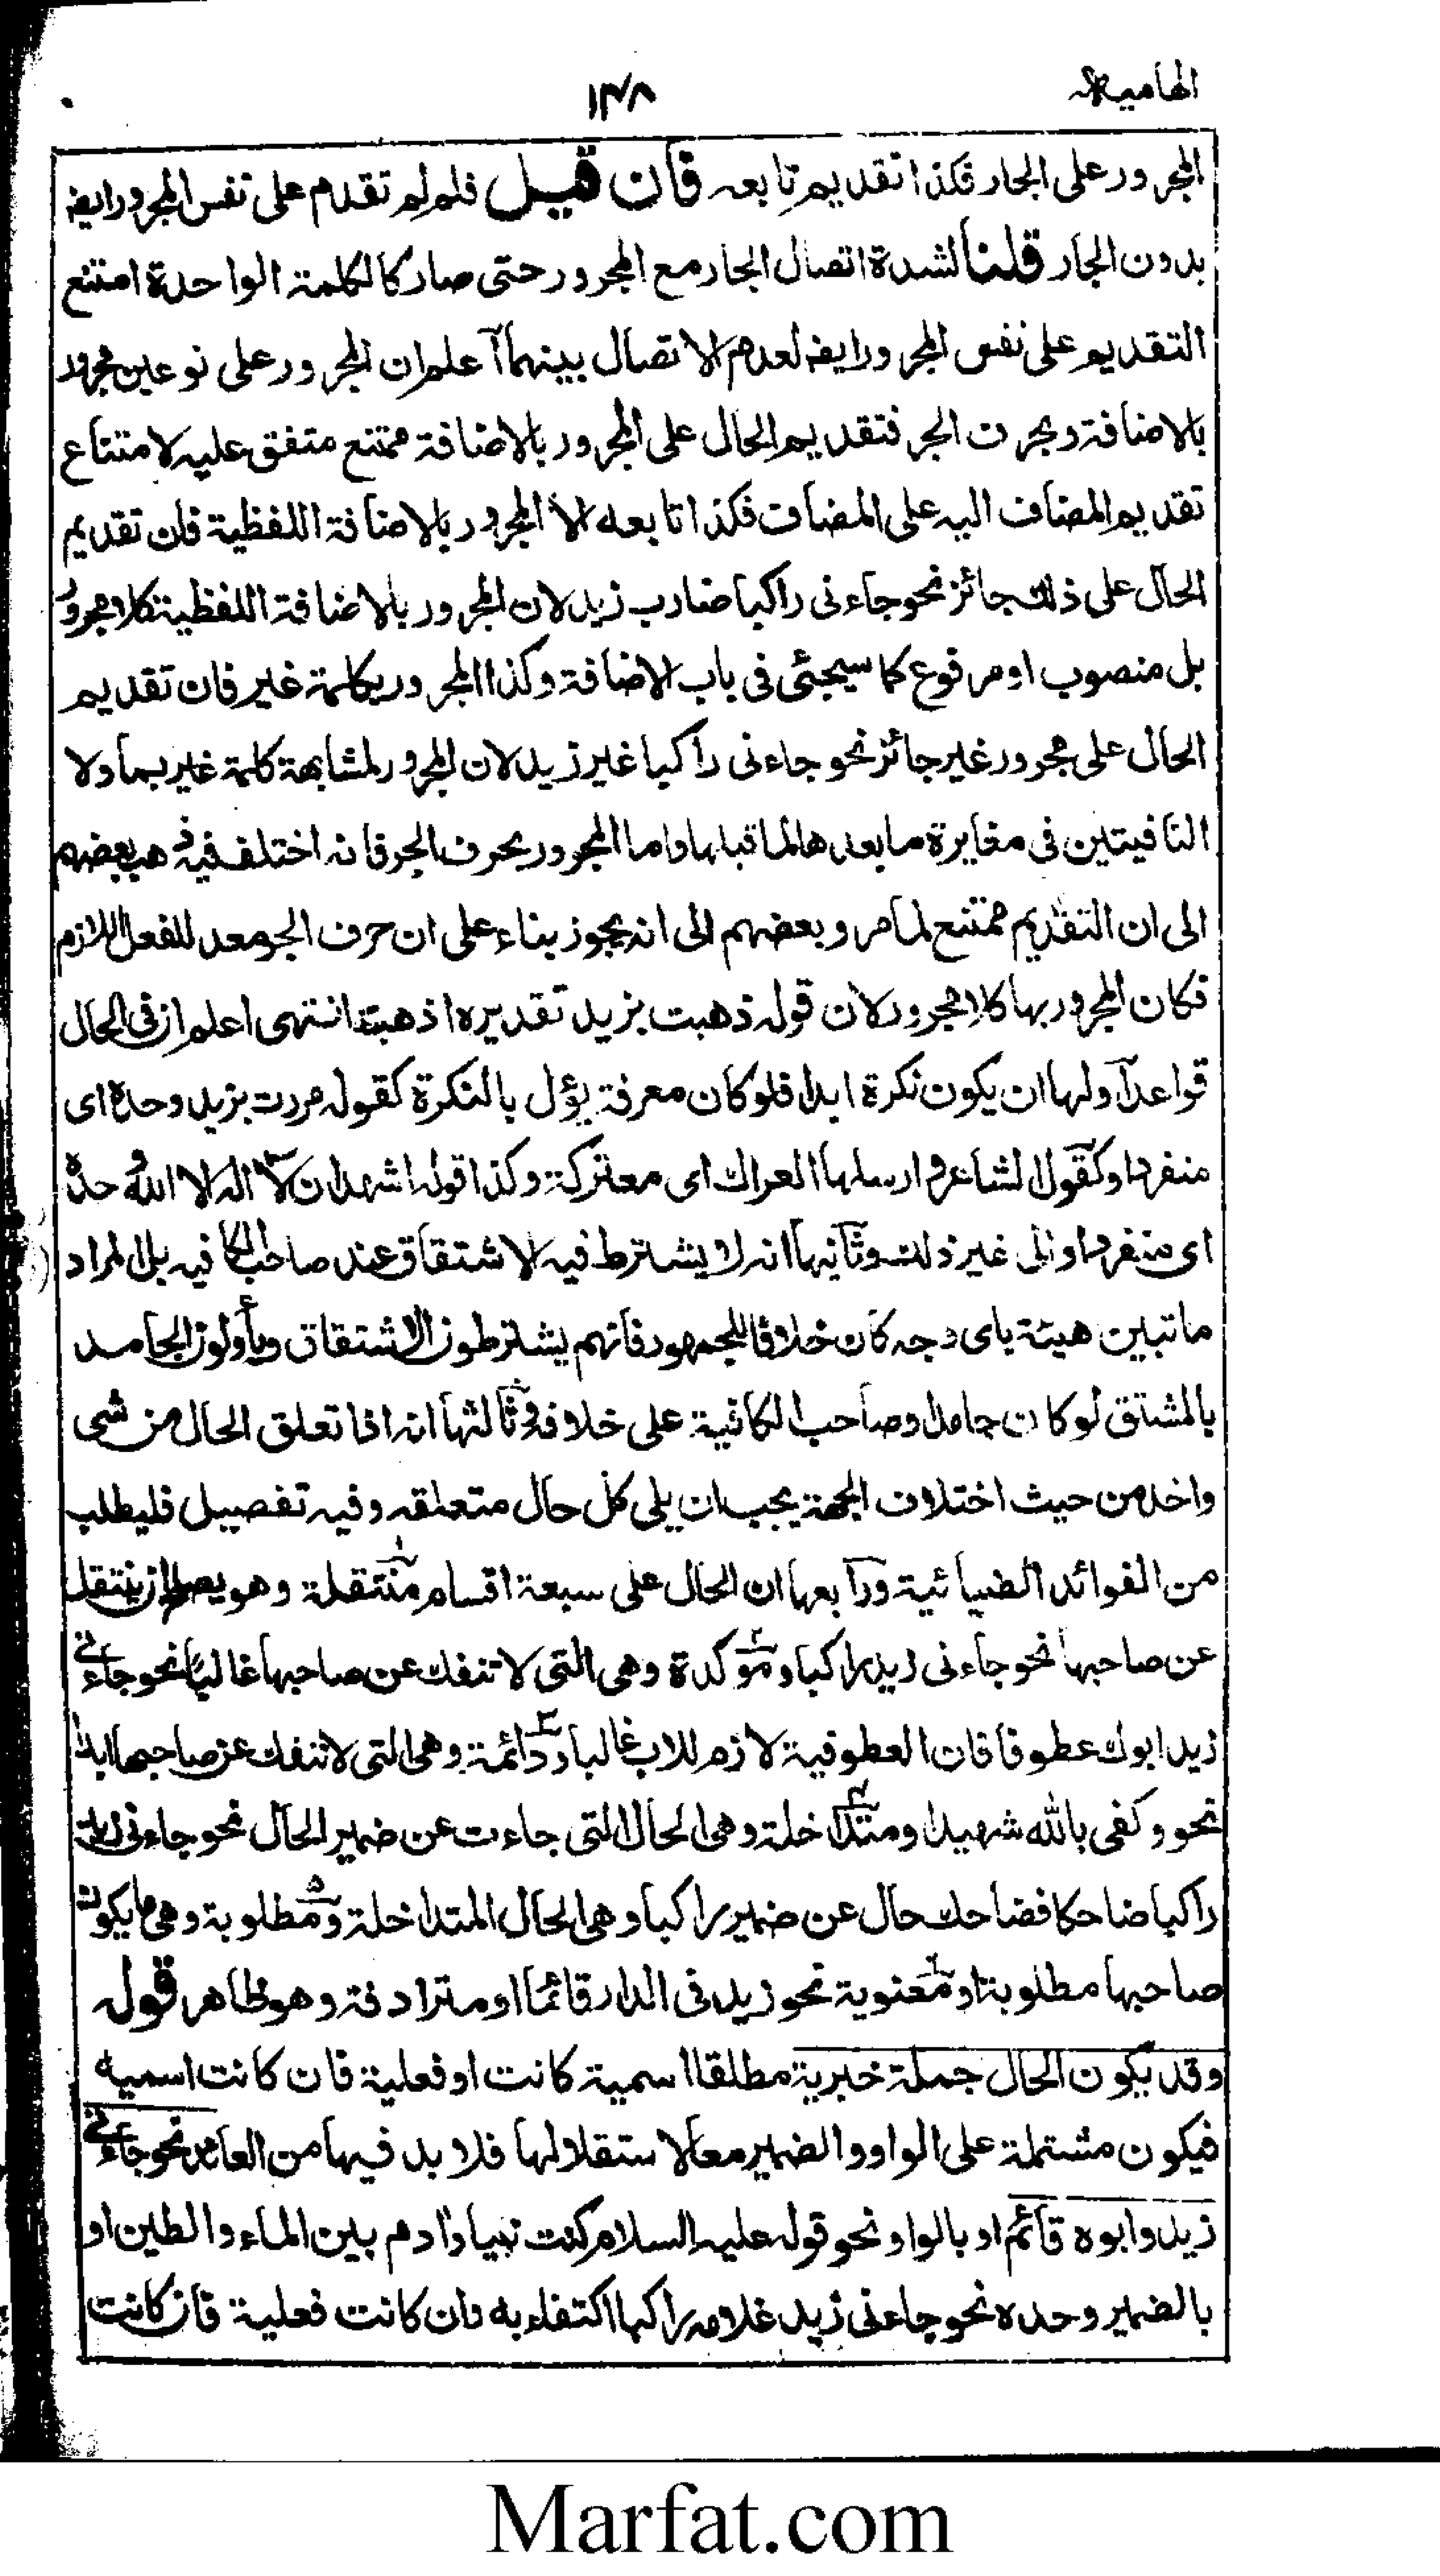 الهامية
۱۴۸
المجرور على الجار فكذا تقديم تابعه فان قيل فلم لم تقدم على نفس المجرور ايضا
بدون الجار قلنا لشدة اتصال الجار مع المجرور حتى صار كالكلمة الواحدة امتنع
التقديم على نفس المجرور ايضا لعدم الاتصال بينهما اعلم ان المجرور على نوعين مجرور
بالاضافة وبحرف الجر فتقديم الحال على المجرور بالاضافة ممتنع متفق عليه لامتناع
تقديم المضاف اليه على المضاف فكذا تابعه الا المجرور بالاضافة اللفظية فان تقديم
الحال على ذلك جائز نحو جاءنى راكبا ضارب زيد لان المجرور بالاضافة اللفظية كلا مجرور
بل منصوب او مرفوع كما سيجئى فى باب الاضافة وكذا المجرور بكلمة غير فان تقديم
الحال على مجرور غير جائز نحو جاءنى راكبا غير زيد لان المجرور لمشابهة كلمة غير بما ولا
النافيتين فى مغايرة ما بعدها لما قبلها واما المجرور بحرف الجر فانه اختلف فيه فذهب بعضهم
الى ان التقديم ممتنع لما مر وبعضهم الى انه يجوز بناء على ان حرف الجر معد للفعل اللازم
فكان المجرور بها كلا مجرور لان قوله ذهبت بزيد تقديره اذهبته انتهى اعلم ان فى الحال
قواعد اولها ان يكون نكرة ابدا فلو كان معرفة يؤل بالنكرة كقوله مررت بزيد وحده اى
منفردا وكقول الشاعر وارسلها العراك اى معتركة وكذا قوله اشهد ان لا اله الا الله وحده
اى منفردا والى غير ذلك وثانيها انه لا يشترط فيه الاشتقاق عند صاحب الكافيه بل المراد
ما تبين هيئة باى وجه كان خلافا للجمهور فانهم يشترطون الاشتقاق ويأولون الجامد
بالمشتق لو كان جامدا وصاحب الكافية على خلافه وثالثها انه اذا تعلق الحال من شى
واحد من حيث اختلاف الجهة يجب ان يلى كل حال متعلقه وفيه تفصيل فليطلب
من الفوائد الضيائية ورابعها ان الحال على سبعة اقسام منتقلة وهو يصلح ان ينتقل
عن صاحبها نحو جاءنى زيد راكبا ومؤكدة وهى التى لا تنفك عن صاحبها غالبا نحو جاءنى
زيد ابوك عطوفا فان العطوفية لازم للاب غالبا ودائمة وهى التى لا تنفك عن صاحبها ابدا
نحو وكفى بالله شهيدا ومتداخلة وهى الحال التى جاءت عن ضمير الحال نحو جاءنى زيد
راكبا ضاحكا فضاحك حال عن ضمير راكبا وهى الحال المتداخلة ومطلوبة وهى ما يكون
صاحبها مطلوبة او معنوية نحو زيد فى الدار قائما او مترادفة وهو ظاهر قوله
وقد يكون الحال جملة خبرية مطلقا اسمية كانت او فعلية فان كانت اسمية
فيكون مشتملة على الواو والضمير معا لاستقلالها فلا بد فيها من العائد نحو جاءنى
زيد وابوه قائم او بالواو نحو قوله عليه السلام كنت نبيا وادم بين الماء والطين او
بالضمير وحده نحو جاءنى زيد غلامه راكبا اكتفاء به وان كانت فعلية فان كانت
Marfat.com